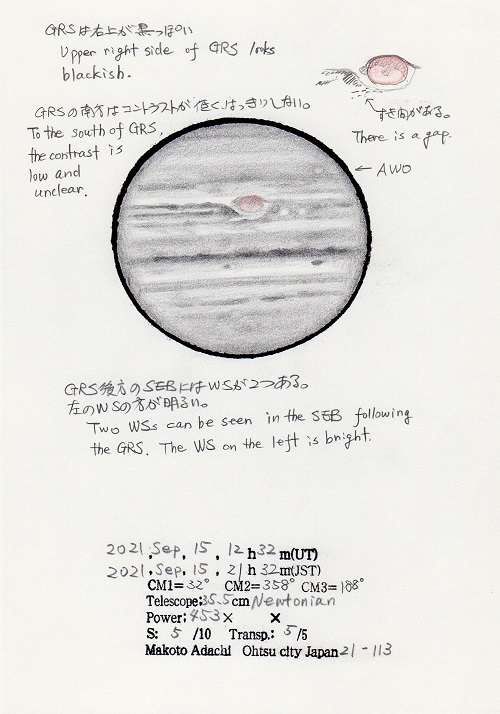 GRSは右上が黒っぽい
Upper right side of GRS looks
blackish.
すき間がある。
There is a gap.
GRSの南方はコントラストが低く、はっきりしない。
To the south of GRS,
the contrast is
low and
unclear.
← AWO
GRS後方のSEBにはWSが2つある。
左のWSの方が明るい。
Two WSs can be seen in the SEB following
the GRS. The WS on the left is bright.
2021, Sep, 15, 12 h 32 m(UT)
2021, Sep, 15, 21 h 32 m(JST)
CM1= 32° CM2= 358° CM3= 188°
Telescope: 35.5 cm Newtonian
Power: 453 × ×
S: 5 /10 Transp.: 5 /5
Makoto Adachi Ohtsu city Japan 21-113